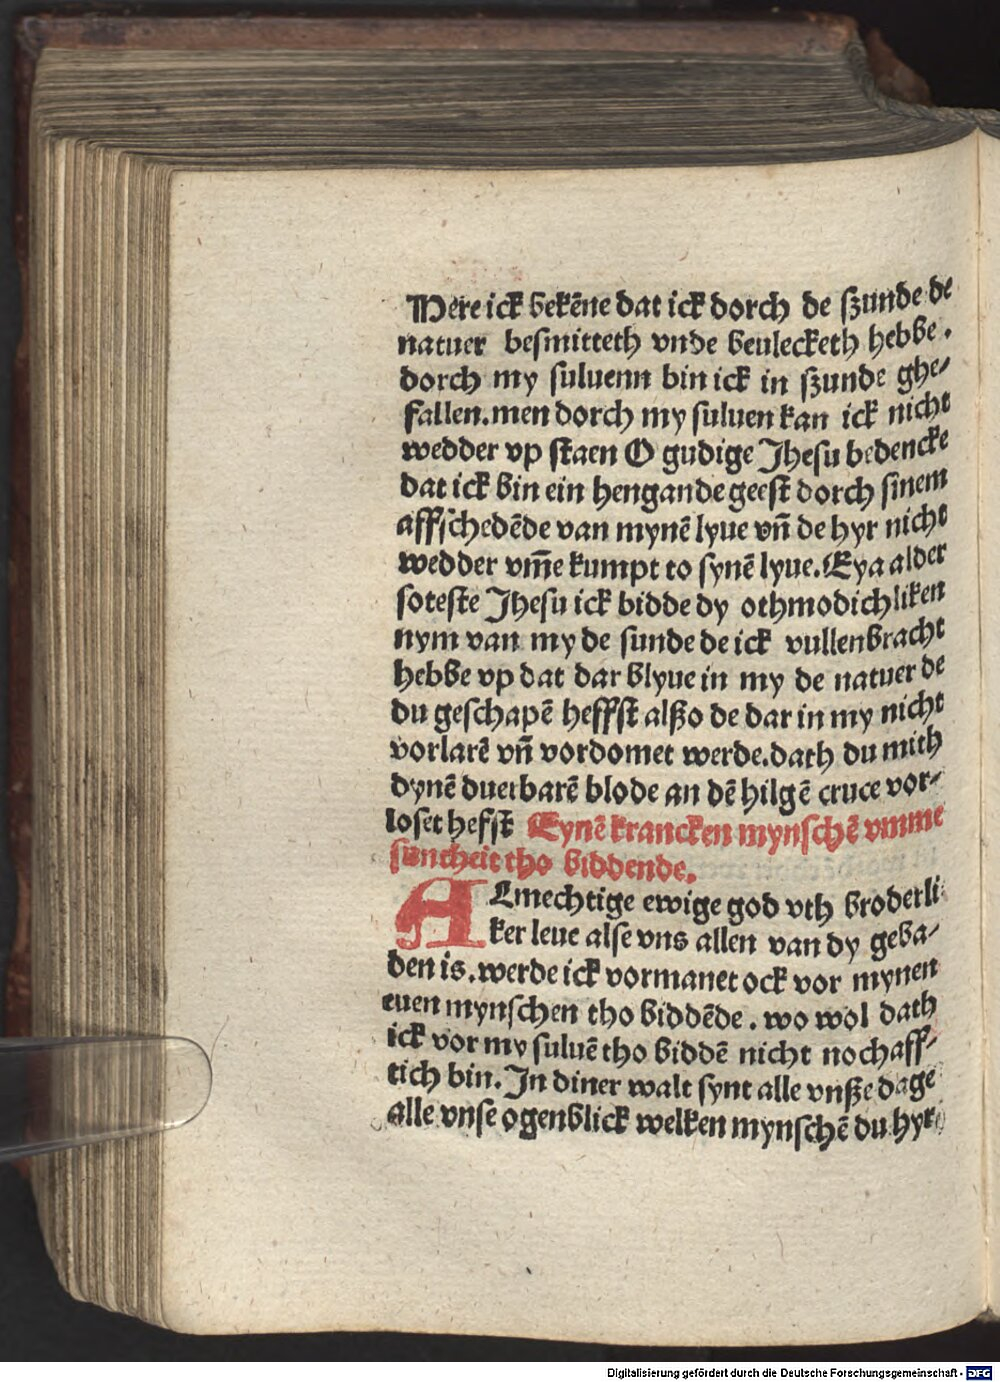 Here ick bekēne dat ick dorch de ſzunde de
natuer beſmitteth vnde beulecketh hebbe.
dorch my ſuluenn bin ick in ſzunde ghe-
fallen.men dorch my ſuluen kan ick nicht
wedder vp ſtaen O gudige Jheſu bedencke
dat ick bin ein hengande geeſt dorch ſinem
affſchedēde van mynē lyue vn̄ de hyr nicht
wedder vm̄e kumpt to ſynē lyue.Eya alder
ſoteſte Jheſu ick bidde dy othmodichliken
nym van my de ſunde de ick vullenbracht
hebbe vp dat dar blyue in my de natuer de
du geſchapē heffſt alßo de dar in my nicht
vorlarē vn̄ vordomet werde.dath du mith
dynē duerbarē blode an dē hilgē cruce vor-
loſet hefſt Eynē krancken mynſchē vmme
ſuntheit tho biddende.
ALmechtige ewige god vth broderli
ker leue alſe vns allen van dy geba-
den is.werde ick vormanet ock vor mynen
euen mynſchen tho biddēde. wo wol dath
ick vor my ſuluē tho biddē nicht nochaff-
tich bin.In diner walt ſynt alle vnße dage
alle vnſe ogenblick welken mynſchē du hyr
Digitalisierung gefördert durch die Deutsche Forschungsgemeinschaft - DFG